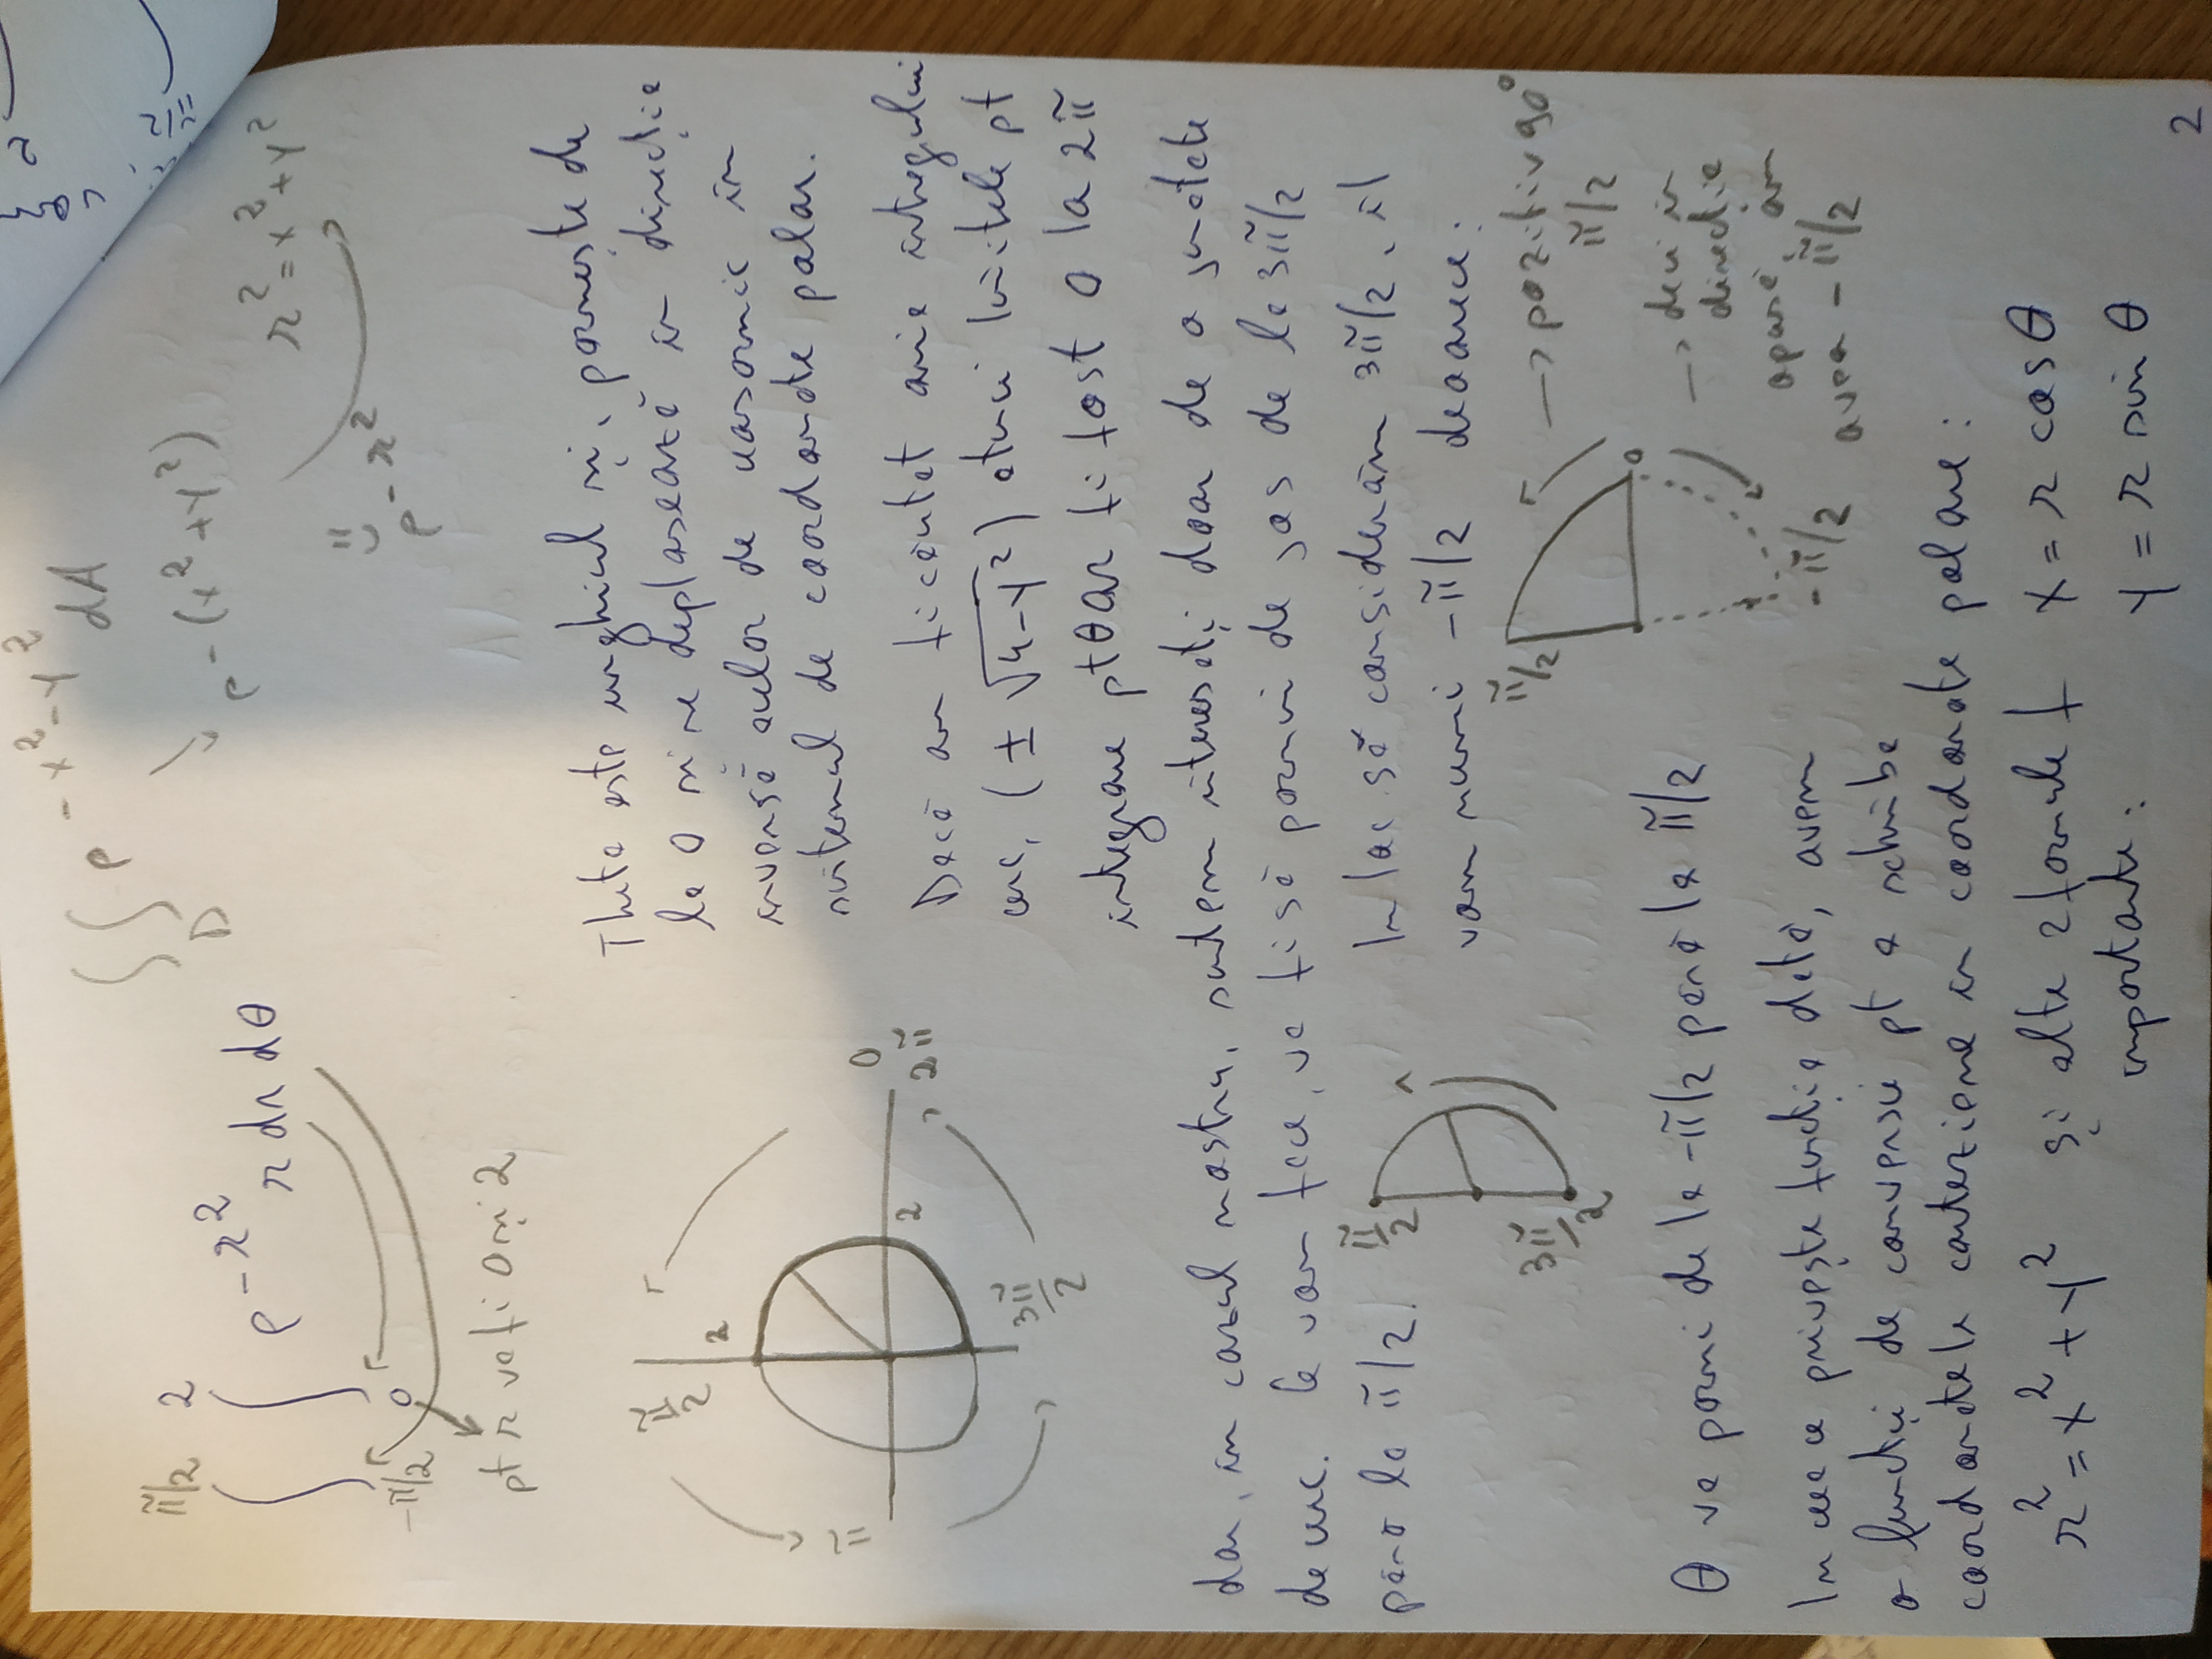 ∫∫_D e^{-x²-y²} dA
e^{-(x²+y²)}
r² = x² + y²
= e^{-r²}
∫_{-π/2}^{π/2} ∫_0^2 e^{-r²} r dr dθ
pt r va fi 0 și 2
Theta este unghiul și, pornește de
la 0 și se deplasează în direcția
inversă acelor de ceasornic în
sistemul de coordonate polar.
π/2
2
π
0
2π
2
3π/2
Dacă am fi căutat aria întregului
cerc, (± √4-y²) atunci limitele pt
integrare pt θ ar fi fost 0 la 2π
dar, în cazul nostru, suntem interesați doar de o jumătate
de cerc. Ce vom face, va fi să pornim de jos de la 3π/2
până la π/2.
π/2
3π/2
In loc să considerăm 3π/2, îl
vom numi -π/2 deoarece:
π/2
0
-π/2
→ pozitiv 90°
π/2
→ deci in
direcție
opusă, am
avea -π/2
θ va porni de la -π/2 până la π/2
In ceea ce privește funcția dată, avem
o funcții de conversie pt a schimba
coordonatele carteziene in coordonate polare:
r² = x² + y² și alte 2 formule f
importante:
x = r cos θ
y = r sin θ
2